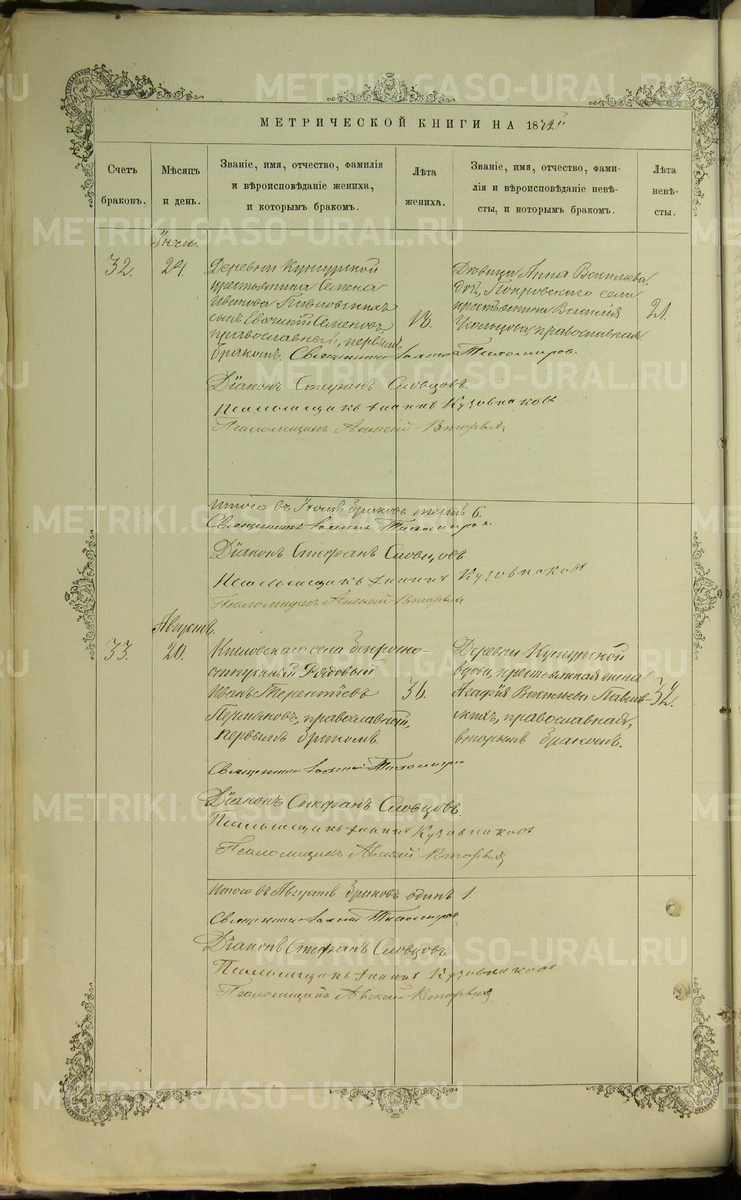 METRIKI.GASO-URAL.RU
МЕТРИЧЕСКОЙ КНИГИ НА 1872й
Счетъ браковъ.
Мѣсяцъ и день.
Званіе, имя, отчество, фамилія
и вѣроисповѣданіе жениха,
и которымъ бракомъ.
Лѣта жениха.
Званіе, имя, отчество, фами-
лія и вѣроисповѣданіе невѣ-
сты, и которымъ бракомъ.
Лѣта невѣ-
сты.
32.
24
Деревни Кунгурской
крестьянина Семена
Иванова
сынъ Семеновъ
православный, первымъ
бракомъ.
18.
Дѣвица Анна Васильева
дочь, Покровскаго села
крестьянина Василія
православная
21.
Священникъ Іоаннъ Тихомировъ.
Діаконъ Стефанъ Словцовъ.
Псаломщикъ Іоаннъ Кузовниковъ
Псаломщикъ Алексій Вторыхъ
Итого въ браковъ шесть 6.
Священникъ Іоаннъ Тихомировъ.
Діаконъ Стефанъ Словцовъ
Псаломщикъ Іоаннъ Кузовниковъ
Псаломщикъ Алексій Вторыхъ
Августъ.
33.
20.
села безсрочно-
отпускный Рядовый
Иванъ Терентіевъ
православный,
первымъ бракомъ.
Деревни Кунгурской
вдова, крестьянская жена
Васильева
православная,
вторымъ бракомъ.
Священникъ Іоаннъ Тихомировъ
Діаконъ Стефанъ Словцовъ.
Псаломщикъ Іоаннъ Кузовниковъ
Псаломщикъ Алексій Вторыхъ
Итого въ Августѣ браковъ одинъ 1.
Священникъ Іоаннъ Тихомировъ
Діаконъ Стефанъ Словцовъ
Псаломщикъ Іоаннъ Кузовниковъ
Псаломщикъ Алексій Вторыхъ